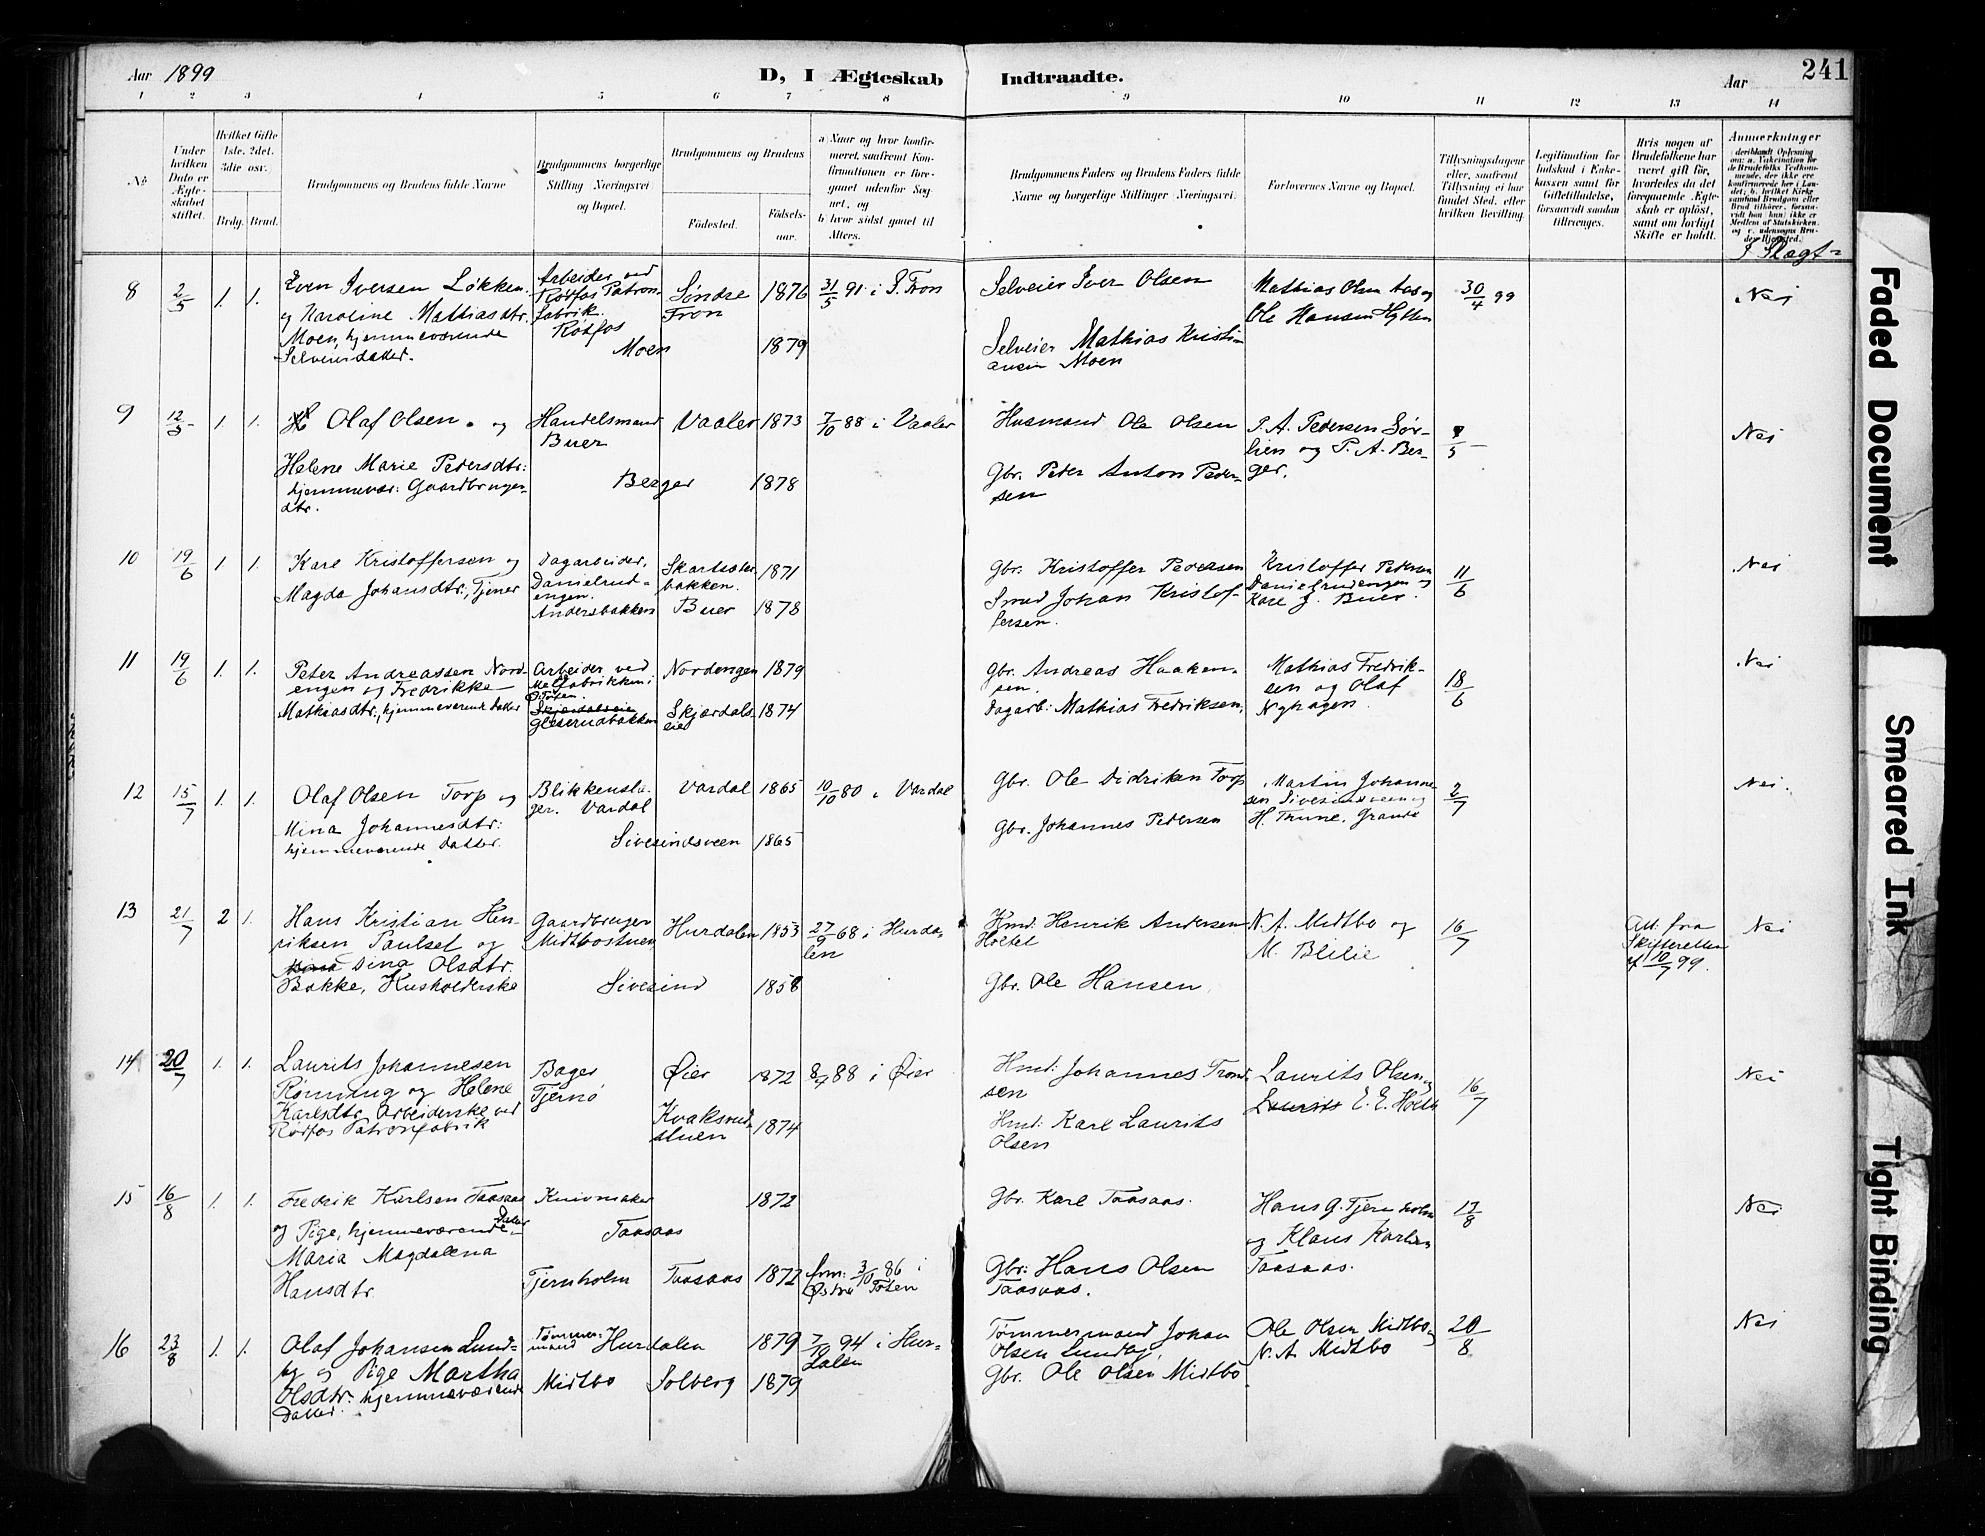 Aar 1899
D, I Ægteskab Indtraadte.
Aar 241
1 2 3 4 5 6 7 8 9 10 11 12 13 14
No
Under hvilken Dato er Ægteskabet stiftet.
Hvilket Gifte 1ste, 2det, 3die osv.
Brdg. Brud.
Brudgommens og Brudens fulde Navne
Brudgommens borgerlige Stilling Næringsvei og Bopæl.
Brudgommens og Brudens
Fødested.
Fødselsaar.
a) Naar og hvor konfirmeret, saafremt Konfirmationen er foregaaet udenfor Sognet, og
b) hvor sidst gaaet til Alters.
Brudgommens Faders og Brudens Faders fulde Navne og borgerlige Stillinger Næringsvei.
Forlovernes Navne og Bopæl.
Tillysningsdagene eller, saafremt Tillysning ei har fundet Sted, efter hvilken Bevilling.
Legitimation for Indskud i Enkekassen samt for Giftetilladelse, forsaavidt saadan tiltrænges.
Hvis nogen af Brudefolkene har været gift før, hvorledes da det foregaaende Ægteskab er opløst, samt om lovligt Skifte er holdt.
Anmerkninger
I Slægt-
8 2/5 1. 1. Even Iversen Løkken
og Karoline Mathiasdtr.
Moen, hjemmeværende
Selveierdatter.
Arbeider ved
Rødfos Patron-
fabrik.
Rødfos
Moen
Søndre
Fron
1876
1879
31/5 91 i S. Fron
Selveier Iver Olsen
Selveier Mathias Kristi-
ansen Moen
Mathias Olsen Aas og
Ole Hansen Hytten
30/4 99
Nei
9 12/5 1. 1. Olaf Olsen og
Helene Marie Pedersdtr.
hjemmevær: Gaardbruger-
dtr.
Handelsmand
Buer
Berger
Vaaler
1873
1878
7/10 88 i Vaaler
Husmand Ole Olsen
Gbr. Peter Anton Peder-
sen
P. A. Pedersen Sør-
lien og P. A. Ber-
ger.
7/5
Nei
10 19/6 1. 1. Karl Kristoffersen og
Magda Johansdtr., Tjener
Dagarbeider,
Danielrud-
engen.
Andersbakken
bakken.
Buer
1871
1878
Gbr. Kristoffer Pedersen
Smed Johan Kristof-
fersen.
Kristoffer Pedersen
Danielrudengen og
Karl J. Buer.
11/6
Nei
11 19/6 1. 1. Peter Andreassen Nord-
engen og Fredrikke
Mathiasdtr., hjemmeværende datter
Arbeider ved
Melfabrikken i
Ø. Toten.
Nordengen
Skjærdals
eiet
1879
1874
Gbr. Andreas Haaken-
sen.
Dagarb: Mathias Fredriksen,
Mathias Fredrik-
sen og Olaf
Nyhagen.
18/6
Nei
12 15/7 1. 1. Olaf Olsen Torp og
Mina Johannesdtr:
hjemmeværende datter.
Blikkensla-
ger. Vardal
Sivesindsveen
Vardal
1865
1865
10/10 80 i Vardal
Gbr. Ole Didriksen Torp
Gbr. Johannes Pedersen
Martin Johanne
sen Sivesindsveen og
H. Thune, Grande
2/7
Nei.
13 21/7 2 1. Hans Kristian Hen-
riksen Paulset og
Dina Olsdtr.
Bakke, Husholderske
Gaardbruger
Midtbostuen
Sivesind
Hurdalen
1853
1858
27/9 68 i Hurda-
len
Hmd. Henrik Andersen
Holtet
Gbr. Ole Hansen
N. A. Midtbo og
M. Blilie
16/7
Att. fra
Skifteretten
af 10/7 99.
Nei
14 20/7 1. 1. Laurits Johannesen
Rønning og Helene
Karlsdtr. Arbeiderske ved
Rødfos Patronfabrik
Bager
Tjernø
Øier
Kvaksrud-
stuen
1872
1874
8/7 88 i Øier
Hmd: Johannes Trond-
sen
Hmd: Karl Laurits
Olsen
Laurits Olsen og
Laurits E. E. Holth
16/7
Nei
15 16/8 1. 1. Fredrik Karlsen Taasaas
og Pige, hjemmeværende Datter
Maria Magdalena
Hansdtr.
Knivmaker
Taasaas
Tjernholm
Taasaas
1872
1872
3/10 86 i
Østre Toten
Gbr. Karl Taasaas.
Gbr: Hans Olsen
Taasaas.
Hans G. Tjernholm
og Klaus Karlsen
Taasaas.
13/8
Nei
16 23/8 1. 1. Olaf Johansen Lund-
by og Pige Martha
Olsdtr: hjemmeværende
Datter.
Tømmer-
mand Hurdalen
Midtbo Solberg
1879
1879
7/10 94 i Hur-
dalen
Tømmermand Johan
Olsen Lundby
Gbr. Ole Olsen Midtbo
Ole Olsen Midtbo og
N. A. Midtbo
20/8
Nei
Faded Document
Smeared Ink
Tight Binding